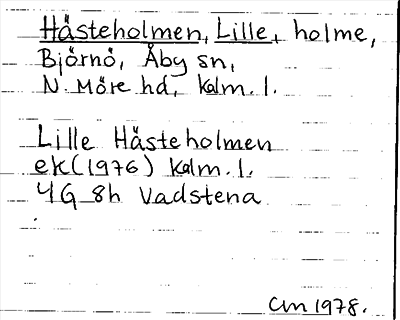 Hästeholmen, Lille, holme,
Björnö, Åby sn,
N. Möre hd, Kalm. l.
Lille Hästeholmen
ek (1976) Kalm. l.
4G 8h Vadstena
CM 1978.